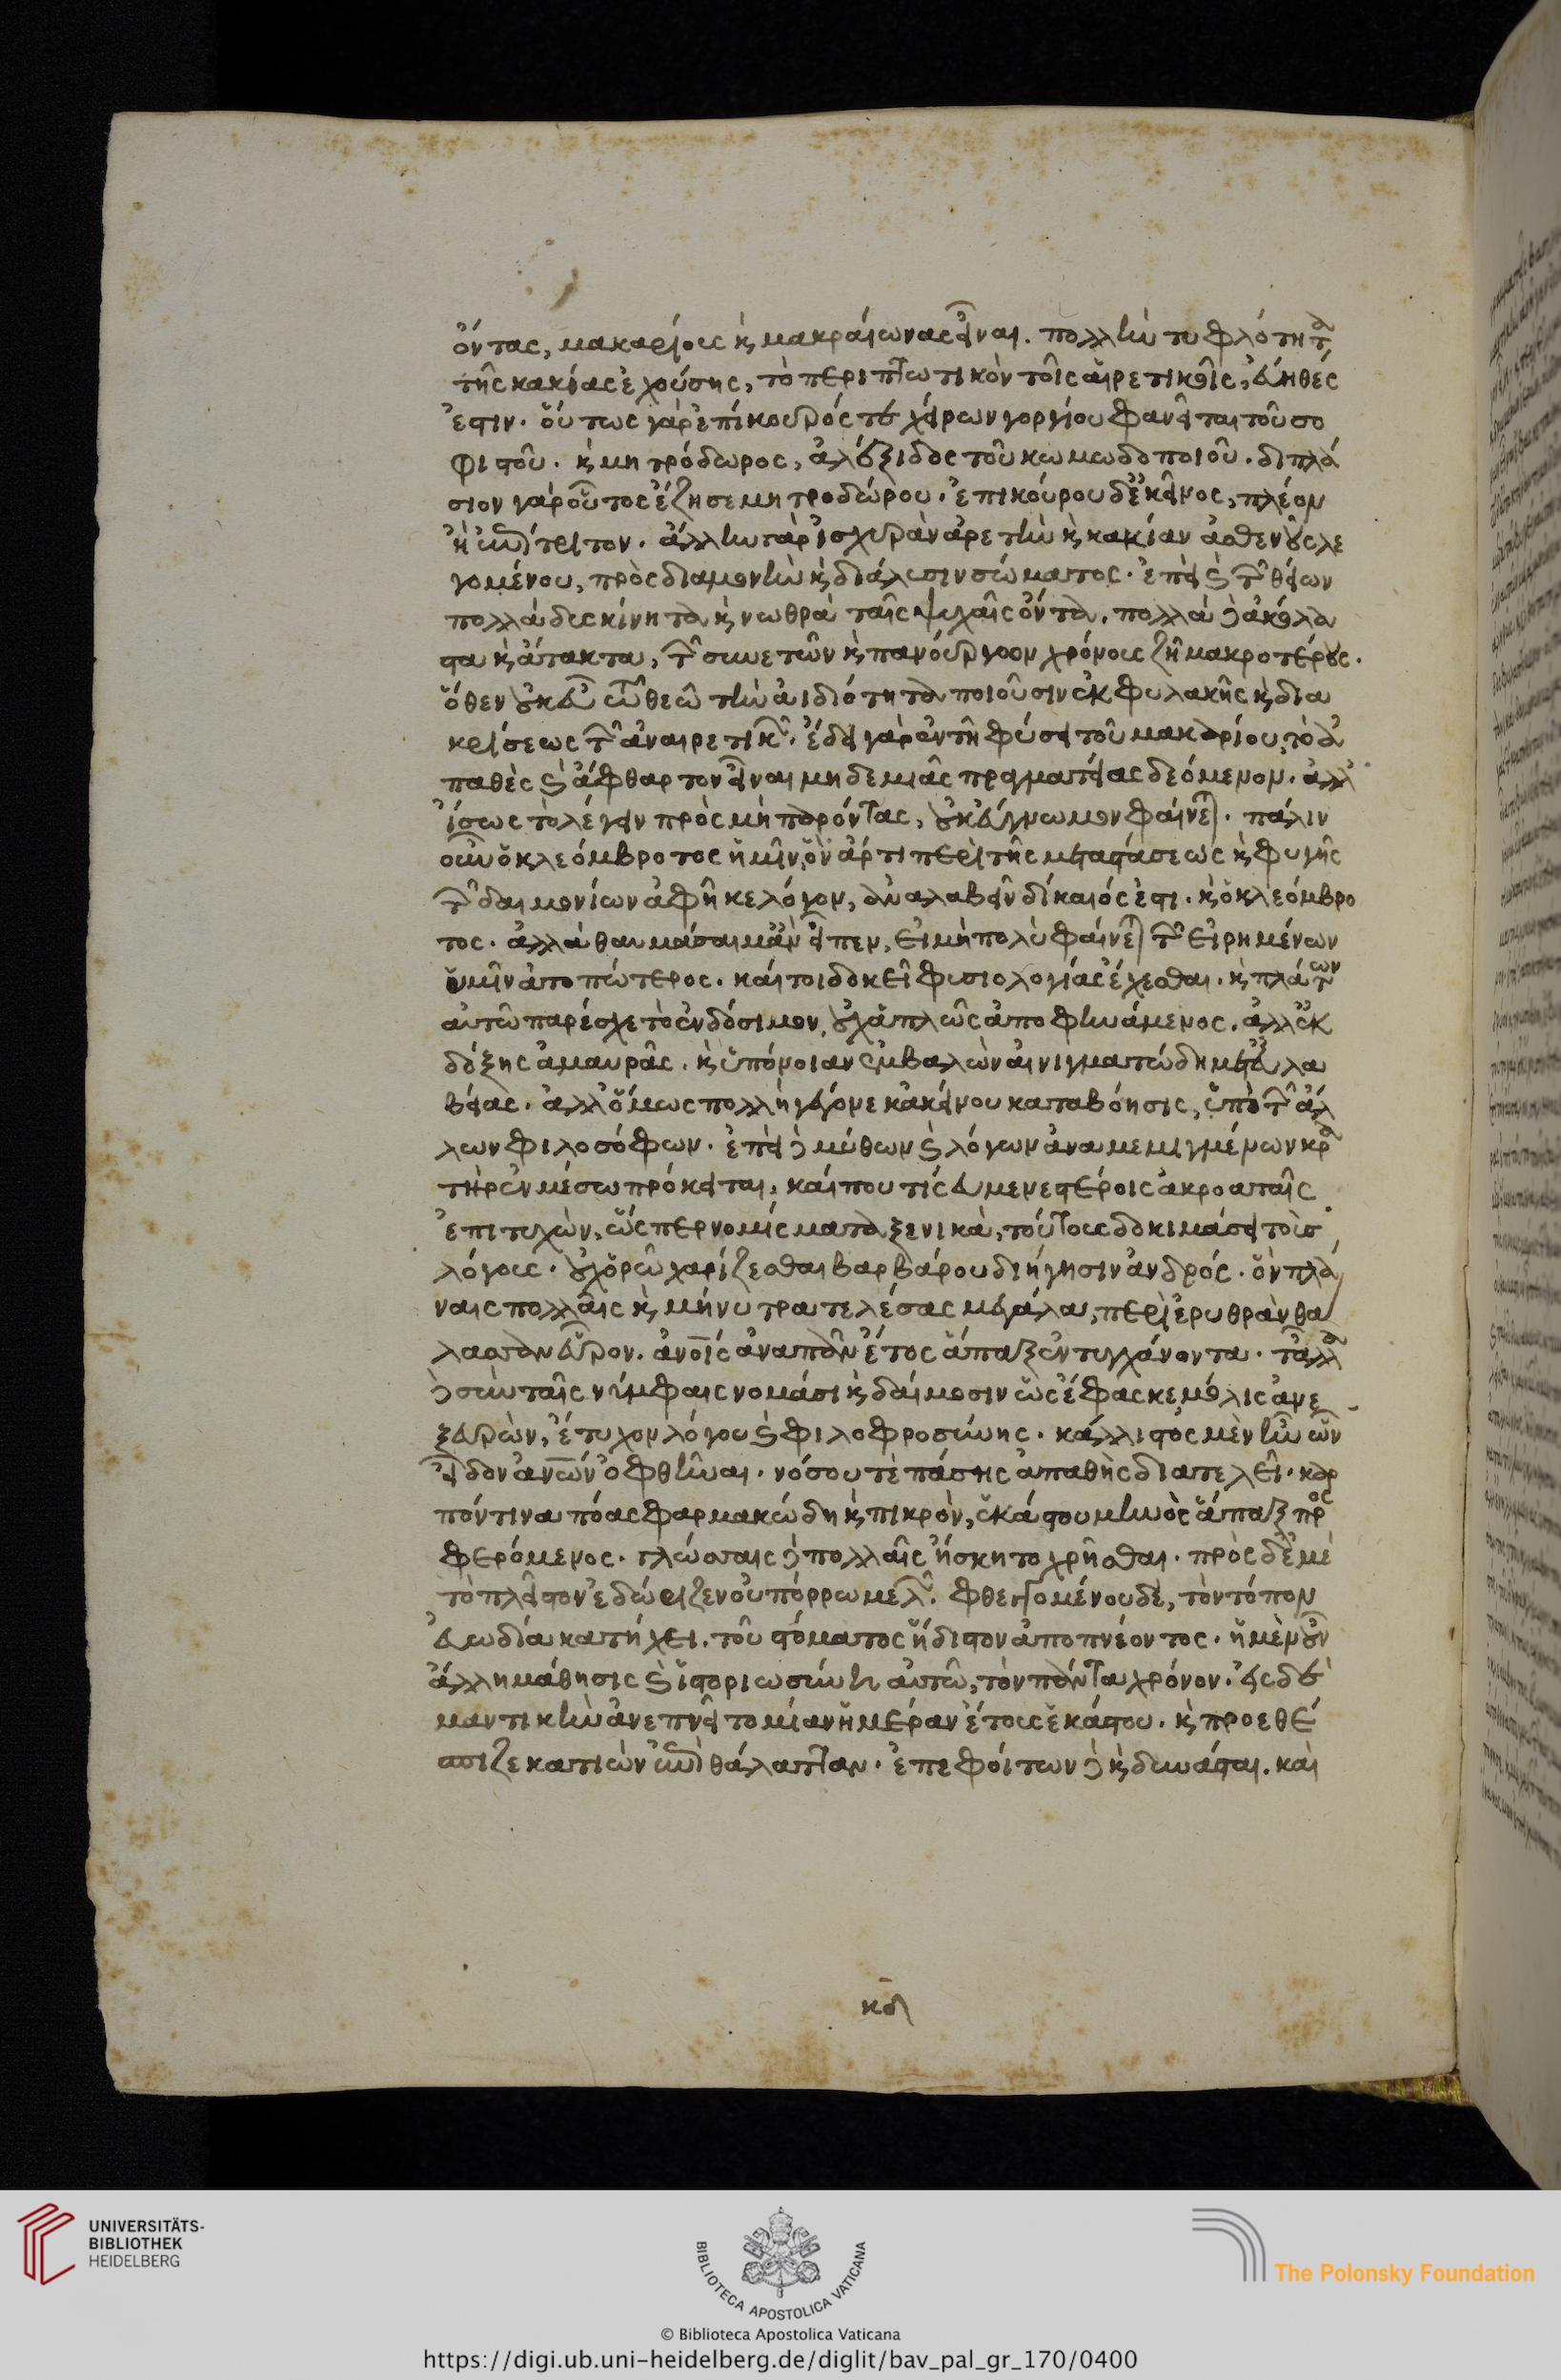 ὄντας, μακαρίους καὶ μακραίωνας εἶναι. πολλὴν τυφλότητα
τῆς κακίας ἐχούσης, τὸ περιπτωτικὸν τοῖς ἀιρετικοῖς, ἀληθές
ἐστιν. οὕτως γὰρ ἐπίκουρός τε χείρων γοργίου φανεῖται τοῦ σο
φιστοῦ. καὶ μητρόδωρος, ἀλέξιδος τοῦ κωμωδοποιοῦ. διπλά
σιον γὰρ οὗτος ἔζησε μητροδώρου. ἐπικούρου δ' ἐκεῖνος, πλέον
ἢ ἐπίτριτον. ἄλλην γὰρ ἰσχυρὰν ἀρετὴν καὶ κακίαν ἀσθενοῦς λε
γομένου, πρὸς διαμονὴν καὶ διάλυσιν σώματος. ἐπεὶ καὶ τῶν θείων
πολλὰ δυσκίνητα καὶ νωθρὰ ταῖς ψυχαῖς ὄντα. πολλὰ δὲ ἀκόλα
στα καὶ ἄτακτα, τῶν συνετῶν καὶ πανούργων χρόνους ζῇ μακροτέρους.
ὅθεν οὐκ εὖ τῷ θεῷ τὴν ἀιδιότητα ποιοῦσιν ἐκ φυλακῆς καὶ δια
κρίσεως τῶν ἀναιρετικῶν. ἔδει γὰρ ἐν τῇ φύσει τοῦ μακαρίου, τὸ ἀ
παθὲς καὶ ἄφθαρτον εἶναι μηδεμιᾶς πραγματείας δεόμενον. ἀλλ'
ἴσως τὸ λέγειν πρὸς μὴ παρόντας, οὐκ εὔγνωμον φαίνεται. πάλιν
οὖν ὁ κλεόμβροτος ἡμῖν, ὃν ἄρτι περὶ τῆς μεταστάσεως καὶ φυγῆς
τῶν δαιμονίων ἀφῆκε λόγον, ἀναλαβεῖν δίκαιός ἐστι. καὶ ὁ κλεόμβρο
τος. ἀλλὰ θαυμάσαιμ' ἂν εἶπεν, εἰ μὴ πολὺ φαίνεται τῶν εἰρημένων
ὑμῖν ἀτοπώτερος. καίτοι δοκεῖ φυσιολογίας ἔχεσθαι. καὶ πλάτων
αὐτῷ παρέσχε τὸ ἐνδόσιμον, οὐχ ἁπλῶς ἀποφηνάμενος. ἀλλ' ἐκ
δόξης ἀμαυρᾶς. καὶ ὑπόνοιαν ἐμβαλὼν αἰνιγματώδη μετ' εὐλα
βείας. ἀλλ' ὅμως πολλὴ γέγονε κἀκείνου καταβόησις, ὑπὸ τῶν ἄλ
λων φιλοσόφων. ἐπεὶ δὲ μύθων καὶ λόγων ἀναμεμιγμένων κρα
τὴρ ἐν μέσῳ πρόκειται, καί που τίς εὐμενεστέροις ἀκροαταῖς
ἐπιτυχὼν, ὥσπερ νομίσματα ξενικὰ, τούτους δοκιμάσει τοὺς
λόγους. οὐχ ὁρῶ χαρίζεσθαι βαρβάρου διήγησιν ἀνδρός. ὃν πλά
ναις πολλαῖς καὶ μήνυτρα τελέσας μεγάλα, περὶ ἐρυθρὰν θά
λασσαν εὗρον. ἀνοις ἀναπᾶν ἔτος ἅπαξ ἐντυγχάνοντα. τἆλλα
δὲ σὺν ταῖς νύμφαις νομάσι καὶ δαίμοσιν ὡς ἔφασκε, μόλις ἀνε
ξευρὼν, ἔτυχον λόγου καὶ φιλοφροσύνης. κάλλιστος μὲν ἦν ὧν
εἶδον ἀνων ὀφθῆναι. νόσου τὲ πάσης ἀπαθὴς διατελεῖ. καρ
πόν τινα πόας φαρμακώδη καὶ πικρὸν, ἑκάστου μηνὸς ἅπαξ προσ
φερόμενος. γλώσσαις δὲ πολλαῖς ἤσκητο χρῆσθαι. πρὸς δ' ἐμὲ
τὸ πλεῖστον ἐδώριζεν οὐ πόρρω μελῶν. φθεγγομένου δὲ, τὸν τόπον
εὐωδία κατήχει. τοῦ στόματος ἥδιστον ἀποπνέοντος. ἡ μὲν οὖν
ἄλλη μάθησις καὶ ἱστορία συνῆν αὐτῷ, τὸν πάντα χρόνον. εἰς δὲ
μαντικὴν ἀνεπνεῖτο μίαν ἡμέραν ἔτους ἑκάστου. καὶ προεθέ
σπιζε κατιὼν ἐπὶ θάλατταν. ἐπεφοίτων δὲ καὶ δυνάσται. καὶ
κδ
UNIVERSITÄTS-
BIBLIOTHEK
HEIDELBERG
BIBLIOTECA APOSTOLICA VATICANA
The Polonsky Foundation
© Biblioteca Apostolica Vaticana
https://digi.ub.uni-heidelberg.de/diglit/bav_pal_gr_170/0400